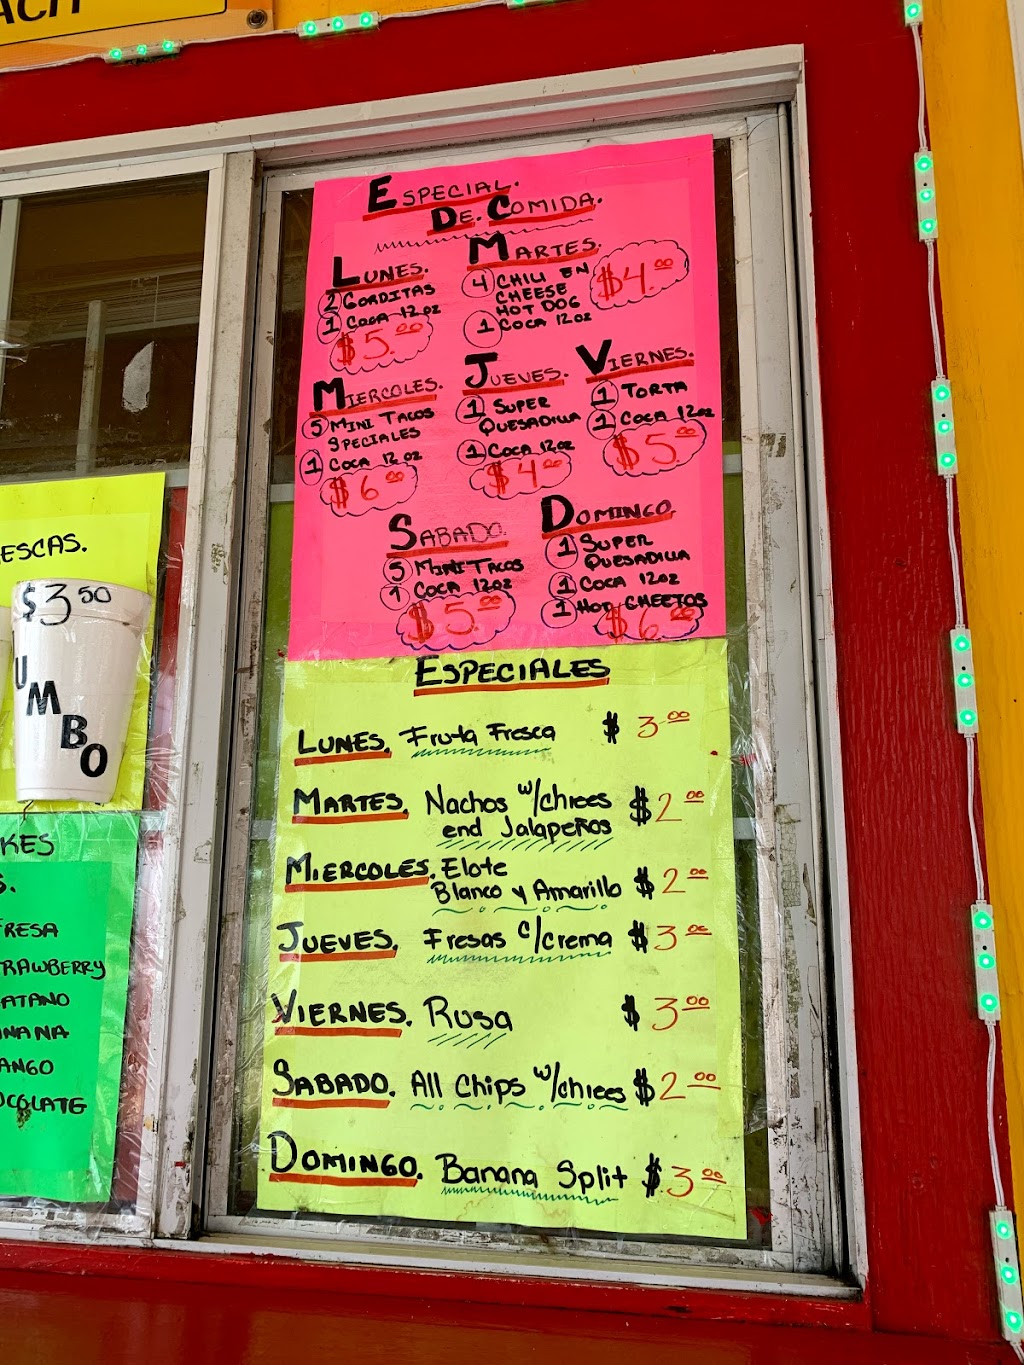 ACH
ESPECIAL.
DE. COMIDA.
LUNES.
2 GORDITAS
1 COCA 12 OZ
$5.00
MARTES.
4 CHILI EN
CHEESE
HOT DOG
1 COCA 12 OZ
$4.00
MIERCOLES.
5 MINI TACOS
SPECIALES
1 COCA 12 OZ
$6.00
JUEVES.
1 SUPER
QUESADILLA
1 COCA 12 OZ
$4.00
VIERNES.
1 TORTA
1 COCA 12 OZ
$5.00
SABADO.
5 MINI TACOS
1 COCA 12 OZ
$5.00
DOMINGO
1 SUPER
QUESADILLA
1 COCA 12 OZ
1 HOT CHEETOS
$6.00
ESPECIALES
LUNES. Fruta Fresca $3.00
MARTES. Nachos w/chees
end Jalapeños $2.00
MIERCOLES. Elote
Blanco y Amarillo $2.00
JUEVES. Fresas c/crema $3.00
VIERNES. Rusa $3.00
SABADO. All Chips w/chees $2.00
DOMINGO. Banana Split $3.00
ESCAS.
$3.50
UMBO
KES
S.
FRESA
RAWBERRY
ATANO
NANA
ANGO
OCOLATE